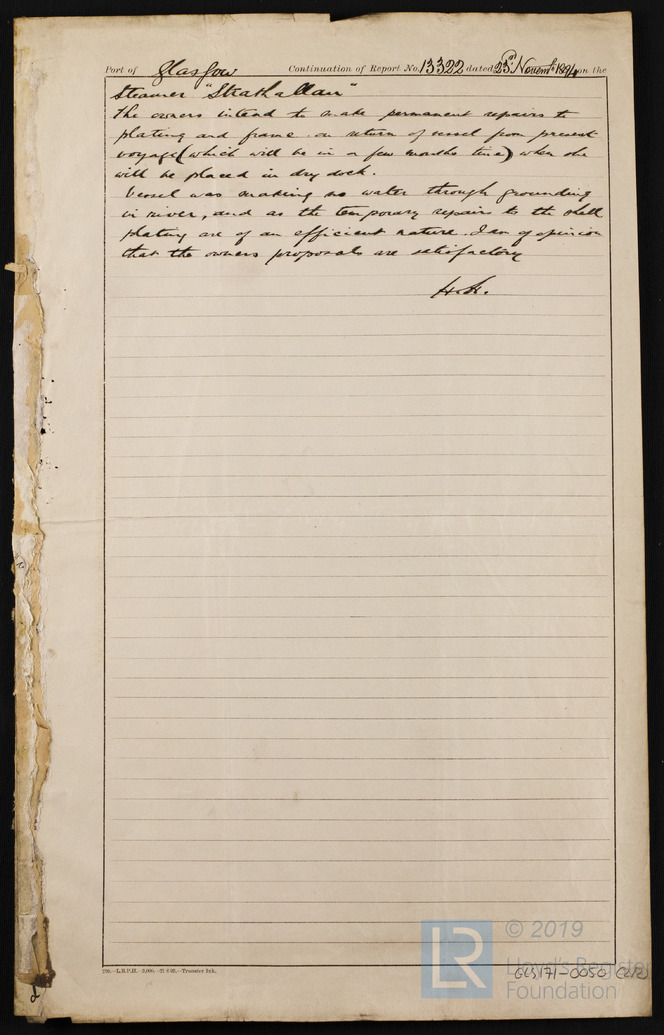 Port of Glasgow Continuation of Report No. 13322 dated 23rd Novemr 1894 on the
Steamer "Strathallan"
The owners intend to make permanent repairs to
plating and frame on return of vessel from present
voyage (which will be in a few months time) when she
will be placed in dry dock.
Vessel was making no water through grounding
in river, and as the temporary repairs to the shell
plating are of an efficient nature. I am of opinion
that the owners proposals are satisfactory
H.K.
© 2019
LR
Lloyd's Register
Foundation
GLS171-0050 (2/2)
L.R.P.H. Transfer Ink.